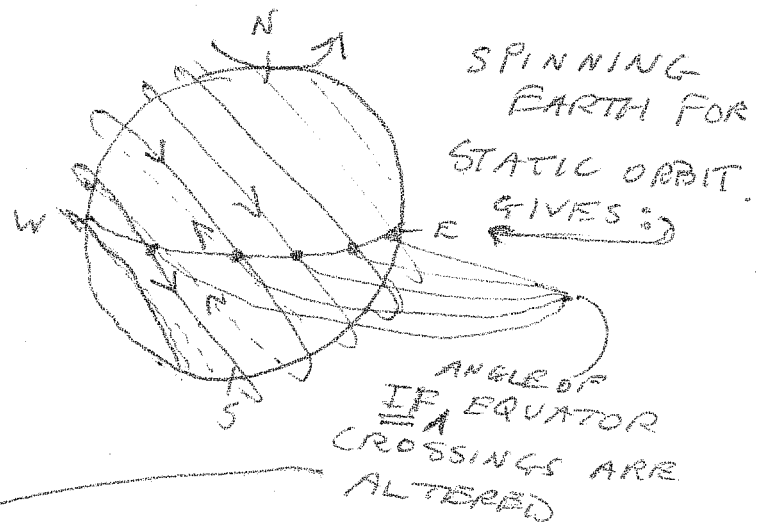 N
SPINNING
EARTH FOR
STATIC ORBIT.
GIVES:
W
E
S
ANGLE OF
IF EQUATOR
CROSSINGS ARE
ALTERED